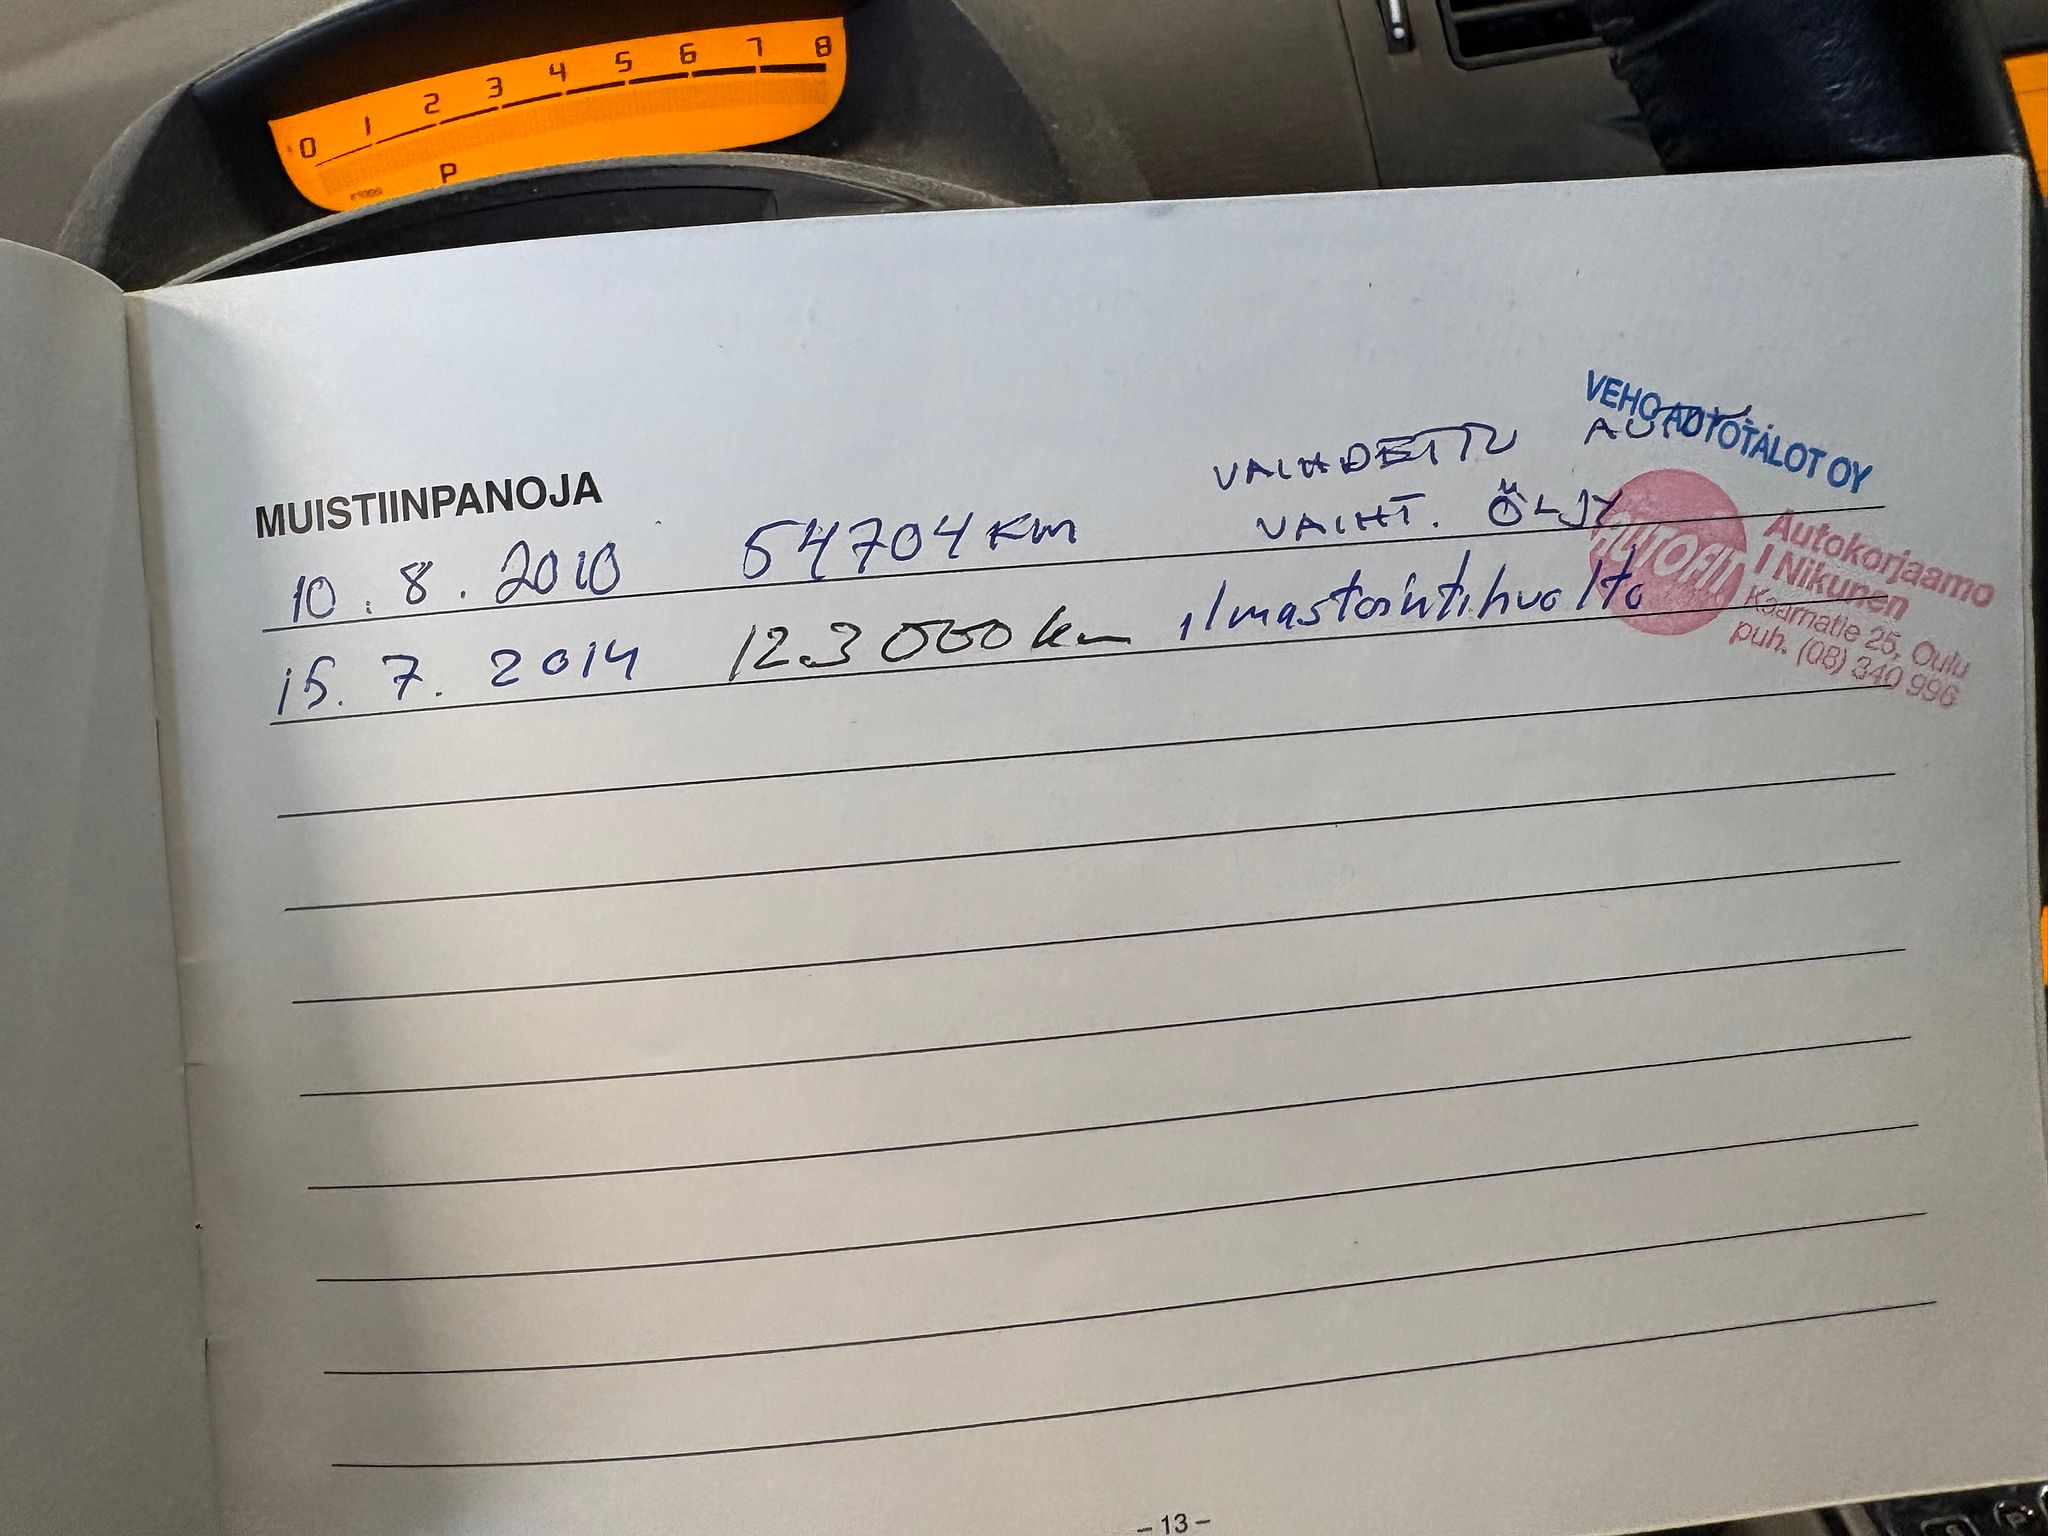 0 1 2 3 4 5 6 7 8
P
VEHO AUTOTALOT OY
MUISTIINPANOJA
VAIHDETTU
10.8.2010 54704 KM VAIHT. ÖLJY
15.7.2014 123000 km ilmastointihuolto
AUTOFIT
Autokorjaamo
I Nikunen
Kaarnatie 25, Oulu
puh. (08) 340 996
– 13 –